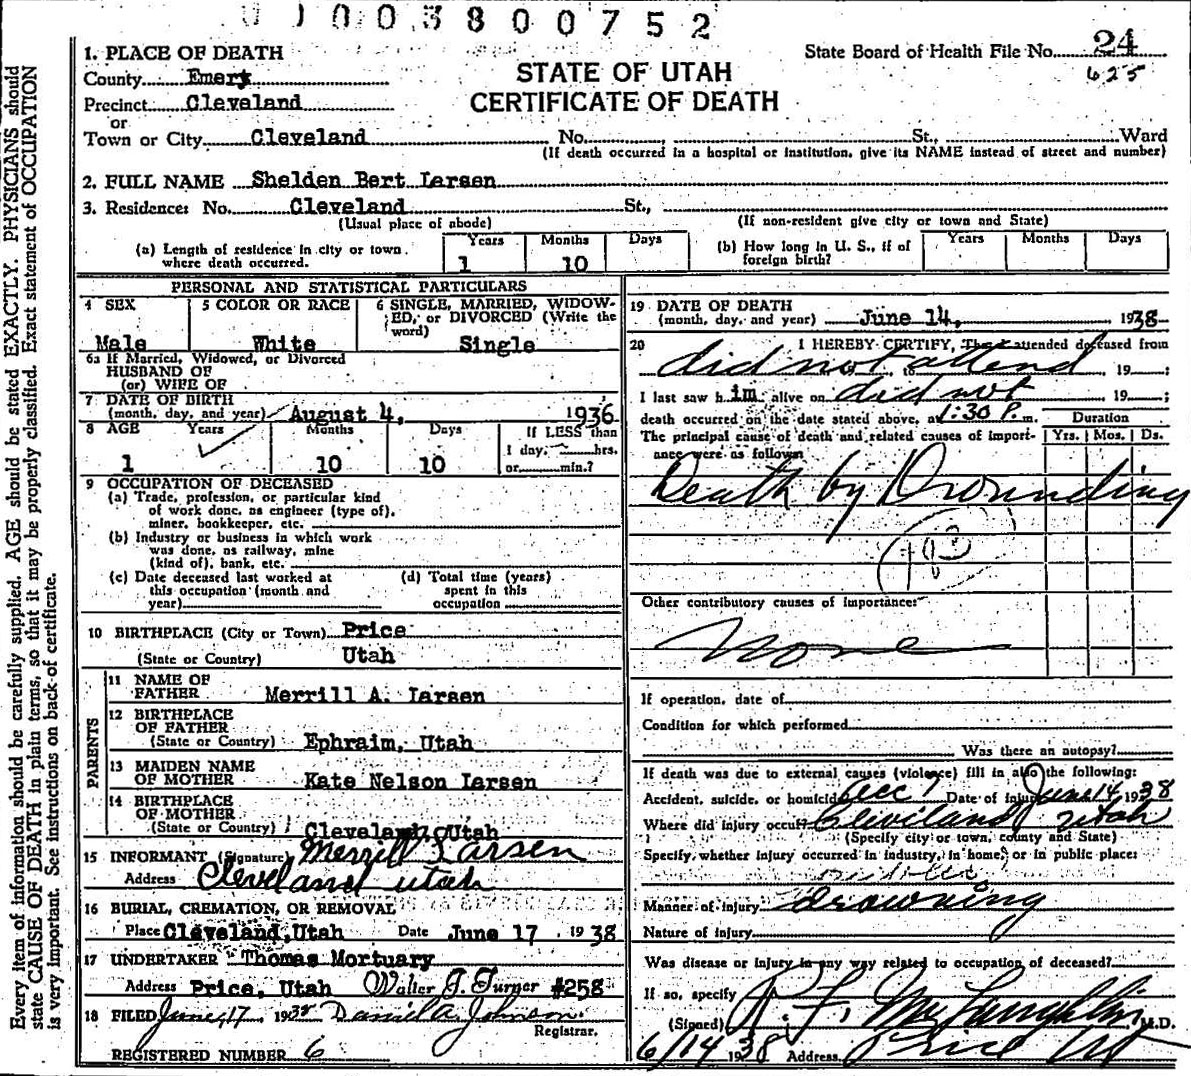 003800752
1. PLACE OF DEATH
State Board of Health File No. 24
County Emery
STATE OF UTAH
625
Precinct Cleveland
CERTIFICATE OF DEATH
or
Town or City Cleveland No. St., Ward
(If death occurred in a hospital or institution, give its NAME instead of street and number)
2. FULL NAME Shelden Bert Larsen
3. Residence: No. Cleveland St.,
(Usual place of abode) (If non-resident give city or town and State)
(a) Length of residence in city or town where death occurred. Years 1 Months 10 Days
(b) How long in U. S., if of foreign birth? Years Months Days
PERSONAL AND STATISTICAL PARTICULARS
4 SEX Male
5 COLOR OR RACE White
6 SINGLE, MARRIED, WIDOW-
ED, or DIVORCED (Write the
word) Single
6a If Married, Widowed, or Divorced
HUSBAND OF
(or) WIFE OF
7 DATE OF BIRTH
(month, day, and year) August 4, 1936
8 AGE Years Months Days If LESS than
1 day, hrs.
1 10 10 or min.?
9 OCCUPATION OF DECEASED
(a) Trade, profession, or particular kind
of work done, as engineer (type of),
miner, bookkeeper, etc.
(b) Industry or business in which work
was done, as railway, mine
(kind of), bank, etc.
(c) Date deceased last worked at
this occupation (month and
year)
(d) Total time (years)
spent in this
occupation
10 BIRTHPLACE (City or Town) Price
(State or Country) Utah
PARENTS
11 NAME OF
FATHER Merrill A. Larsen
12 BIRTHPLACE
OF FATHER
(State or Country) Ephraim, Utah
13 MAIDEN NAME
OF MOTHER Kate Nelson Larsen
14 BIRTHPLACE
OF MOTHER
(State or Country) Cleveland, Utah
15 INFORMANT (Signature) Merrill Larsen
Address Cleveland Utah
16 BURIAL, CREMATION, OR REMOVAL
Place Cleveland, Utah Date June 17, 1938
17 UNDERTAKER Thomas Mortuary
Address Price, Utah Walter J. Turner #258
18 FILED June 17 1938 Daniel A. Johnson
Registrar.
REGISTERED NUMBER 6
19 DATE OF DEATH
(month, day, and year) June 14, 1938
20 I HEREBY CERTIFY, That I attended deceased from
did not attend, 19 ;
I last saw him alive on did not 19 ;
death occurred on the date stated above, at 1:30 P. m.
Duration
The principal cause of death and related causes of import-
ance were as follows Yrs. Mos. Ds.
Death by Drounding
183
Other contributory causes of importance:
None
If operation, date of
Condition for which performed
Was there an autopsy?
If death was due to external causes (violence) fill in also the following:
Accident, suicide, or homicide Acc Date of injury June 14 1938
Where did injury occur? Cleveland Utah
(Specify city or town, county and State)
Specify whether injury occurred in industry, in home, or in public place:
Manner of injury drowning
Nature of injury
Was disease or injury in any way related to occupation of deceased?
If so, specify
(Signed) R. F. McLaughlin M.D.
6/14 1938 Address Price Ut
Every item of information should be carefully supplied. AGE should be stated EXACTLY. PHYSICIANS should
state CAUSE OF DEATH in plain terms, so that it may be properly classified. Exact statement of OCCUPATION
is very important. See instructions on back of certificate.